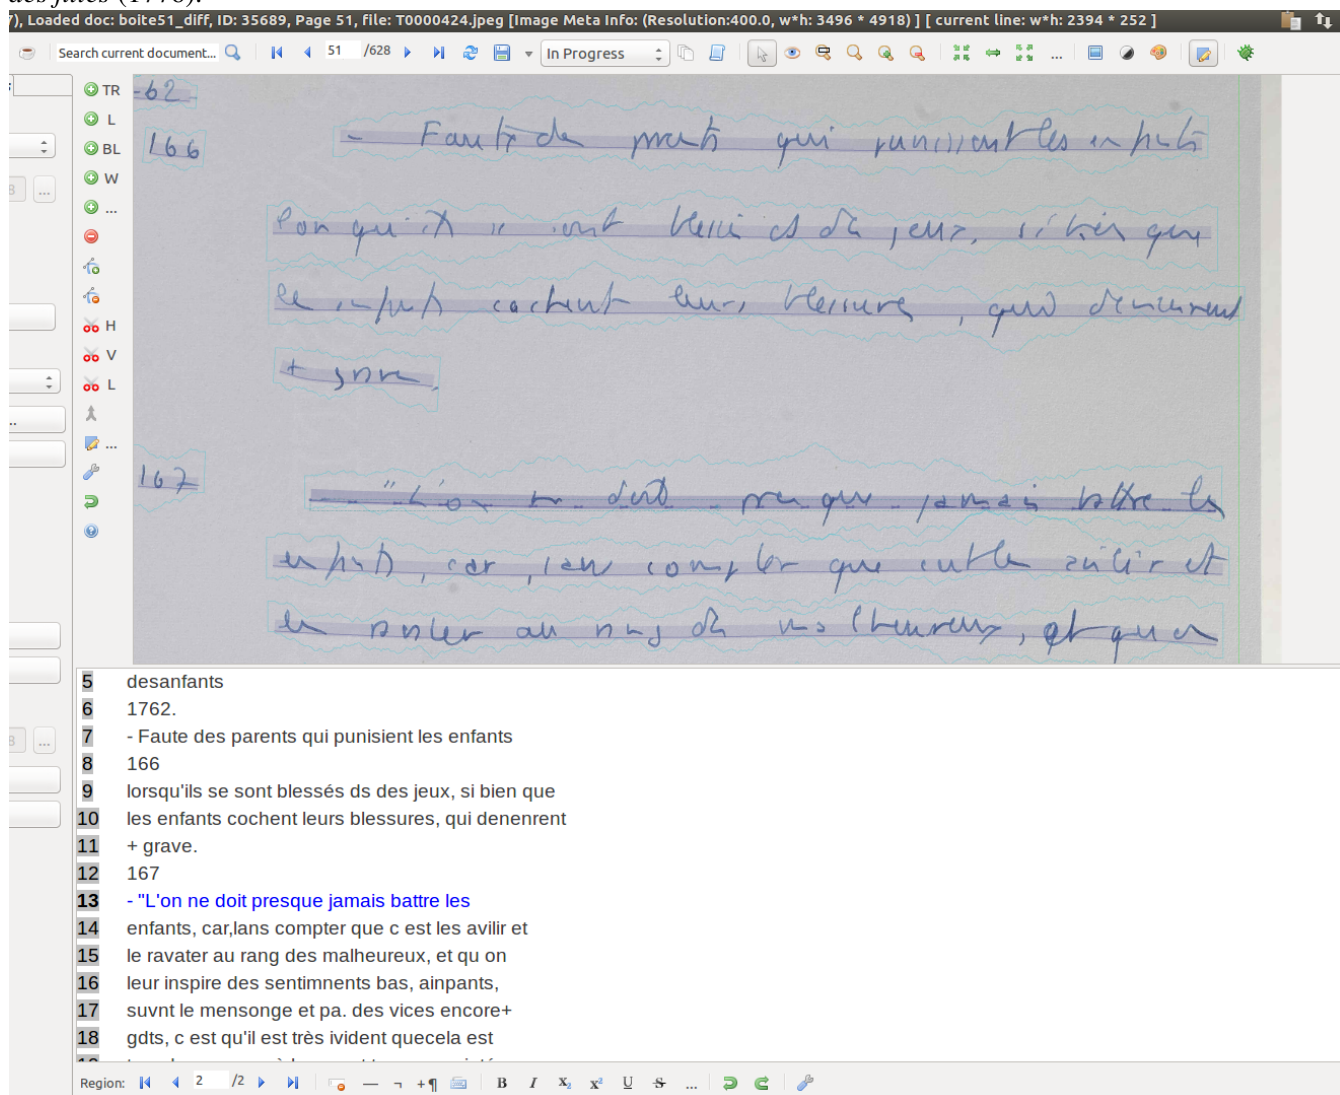 des filles (1776).
), Loaded doc: boite51_diff, ID: 35689, Page 51, file: T0000424.jpeg [Image Meta Info: (Resolution:400.0, w*h: 3496 * 4918) ] [ current line: w*h: 2394 * 252 ]
Search current document... 51 /628 In Progress ...
TR
L
BL
W
...
H
V
L
...
-62-
166 - Faute de parents qui punissent les enfants
lorsqu'ils se sont blessés ds des jeux, si bien que
les enfants cachent leurs blessures, qui deviennent
+ grave.
167 - "L'on ne doit presque jamais battre les
enfants, car, sans compter que c'est les avilir et
les ravaler au rang des malheureux, et qu'on
5 desanfants
6 1762.
7 - Faute des parents qui punisient les enfants
8 166
9 lorsqu'ils se sont blessés ds des jeux, si bien que
10 les enfants cochent leurs blessures, qui denenrent
11 + grave.
12 167
13 - "L'on ne doit presque jamais battre les
14 enfants, car,lans compter que c est les avilir et
15 le ravater au rang des malheureux, et qu on
16 leur inspire des sentimnents bas, ainpants,
17 suvnt le mensonge et pa. des vices encore+
18 gdts, c est qu'il est très ivident quecela est
Region: 2 /2 — ¬ +¶ B I X₂ X² U S ...